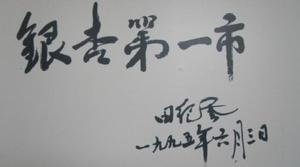 銀杏第一市
田纪云
一九九五年六月三日